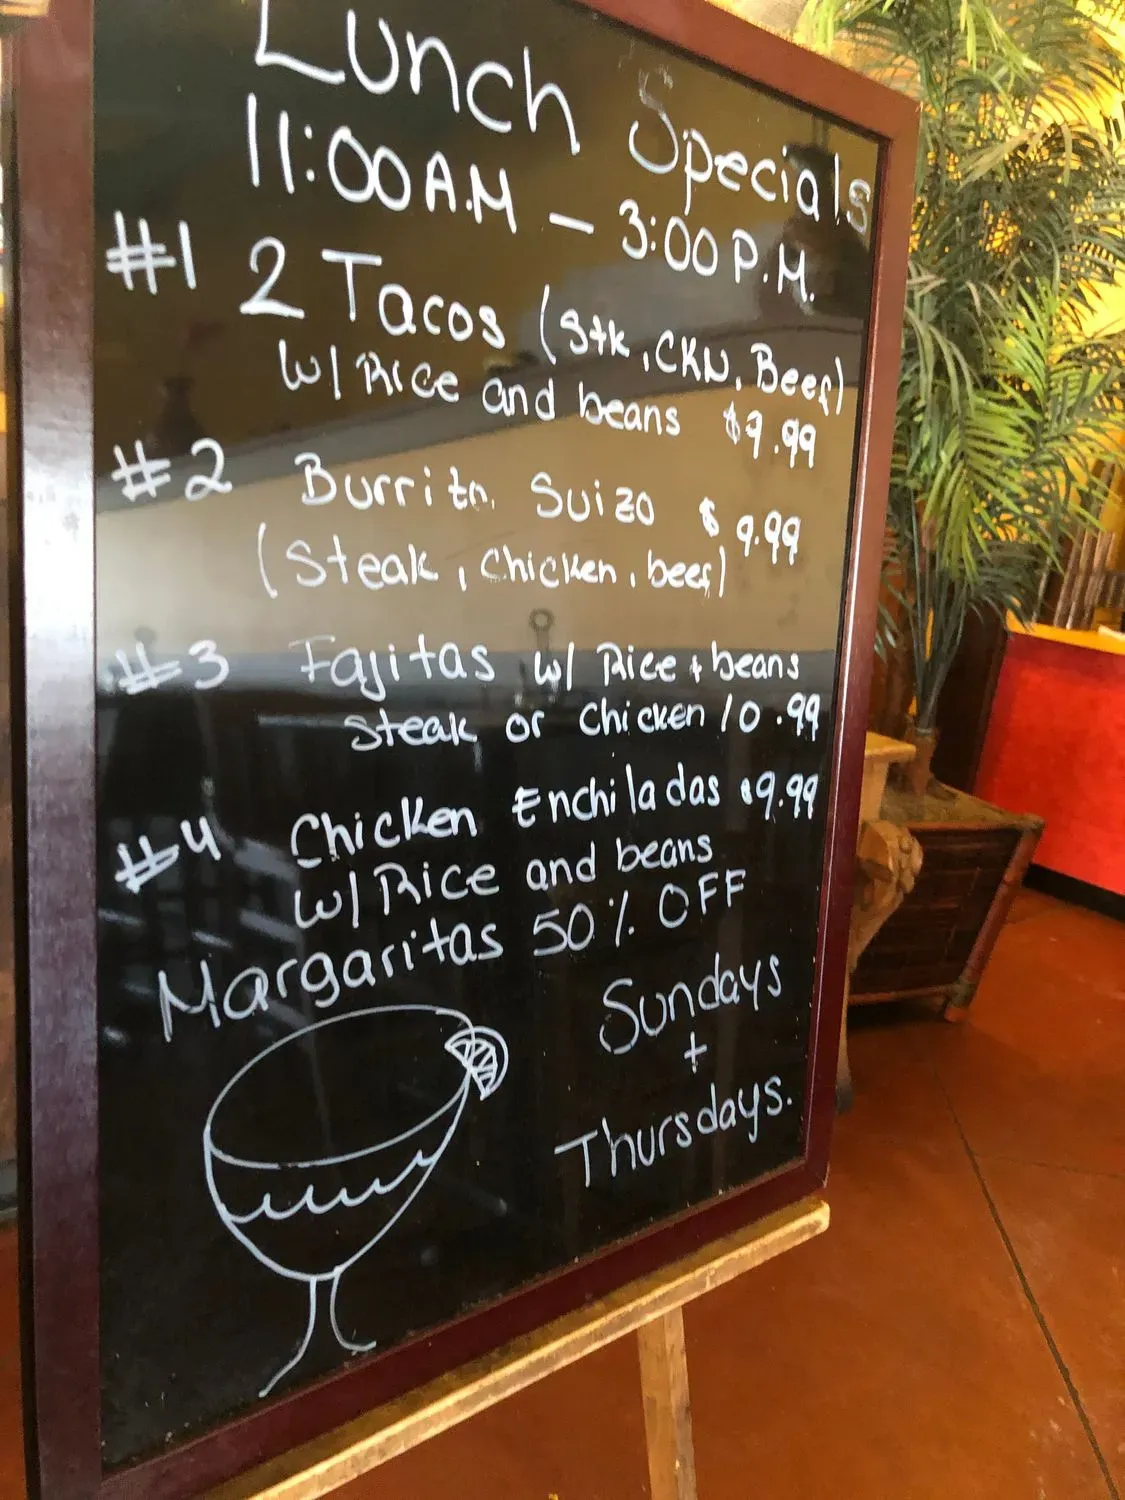 Lunch Specials
11:00 A.M – 3:00 P.M.
#1 2 Tacos (Stk, CKN, Beef)
w/ Rice and beans $9.99
#2 Burrito Suizo $9.99
(Steak, Chicken, beef)
#3 Fajitas w/ Rice + beans
Steak or Chicken 10.99
#4 Chicken Enchiladas $9.99
w/ Rice and beans
Margaritas 50% OFF
Sundays
+
Thursdays.